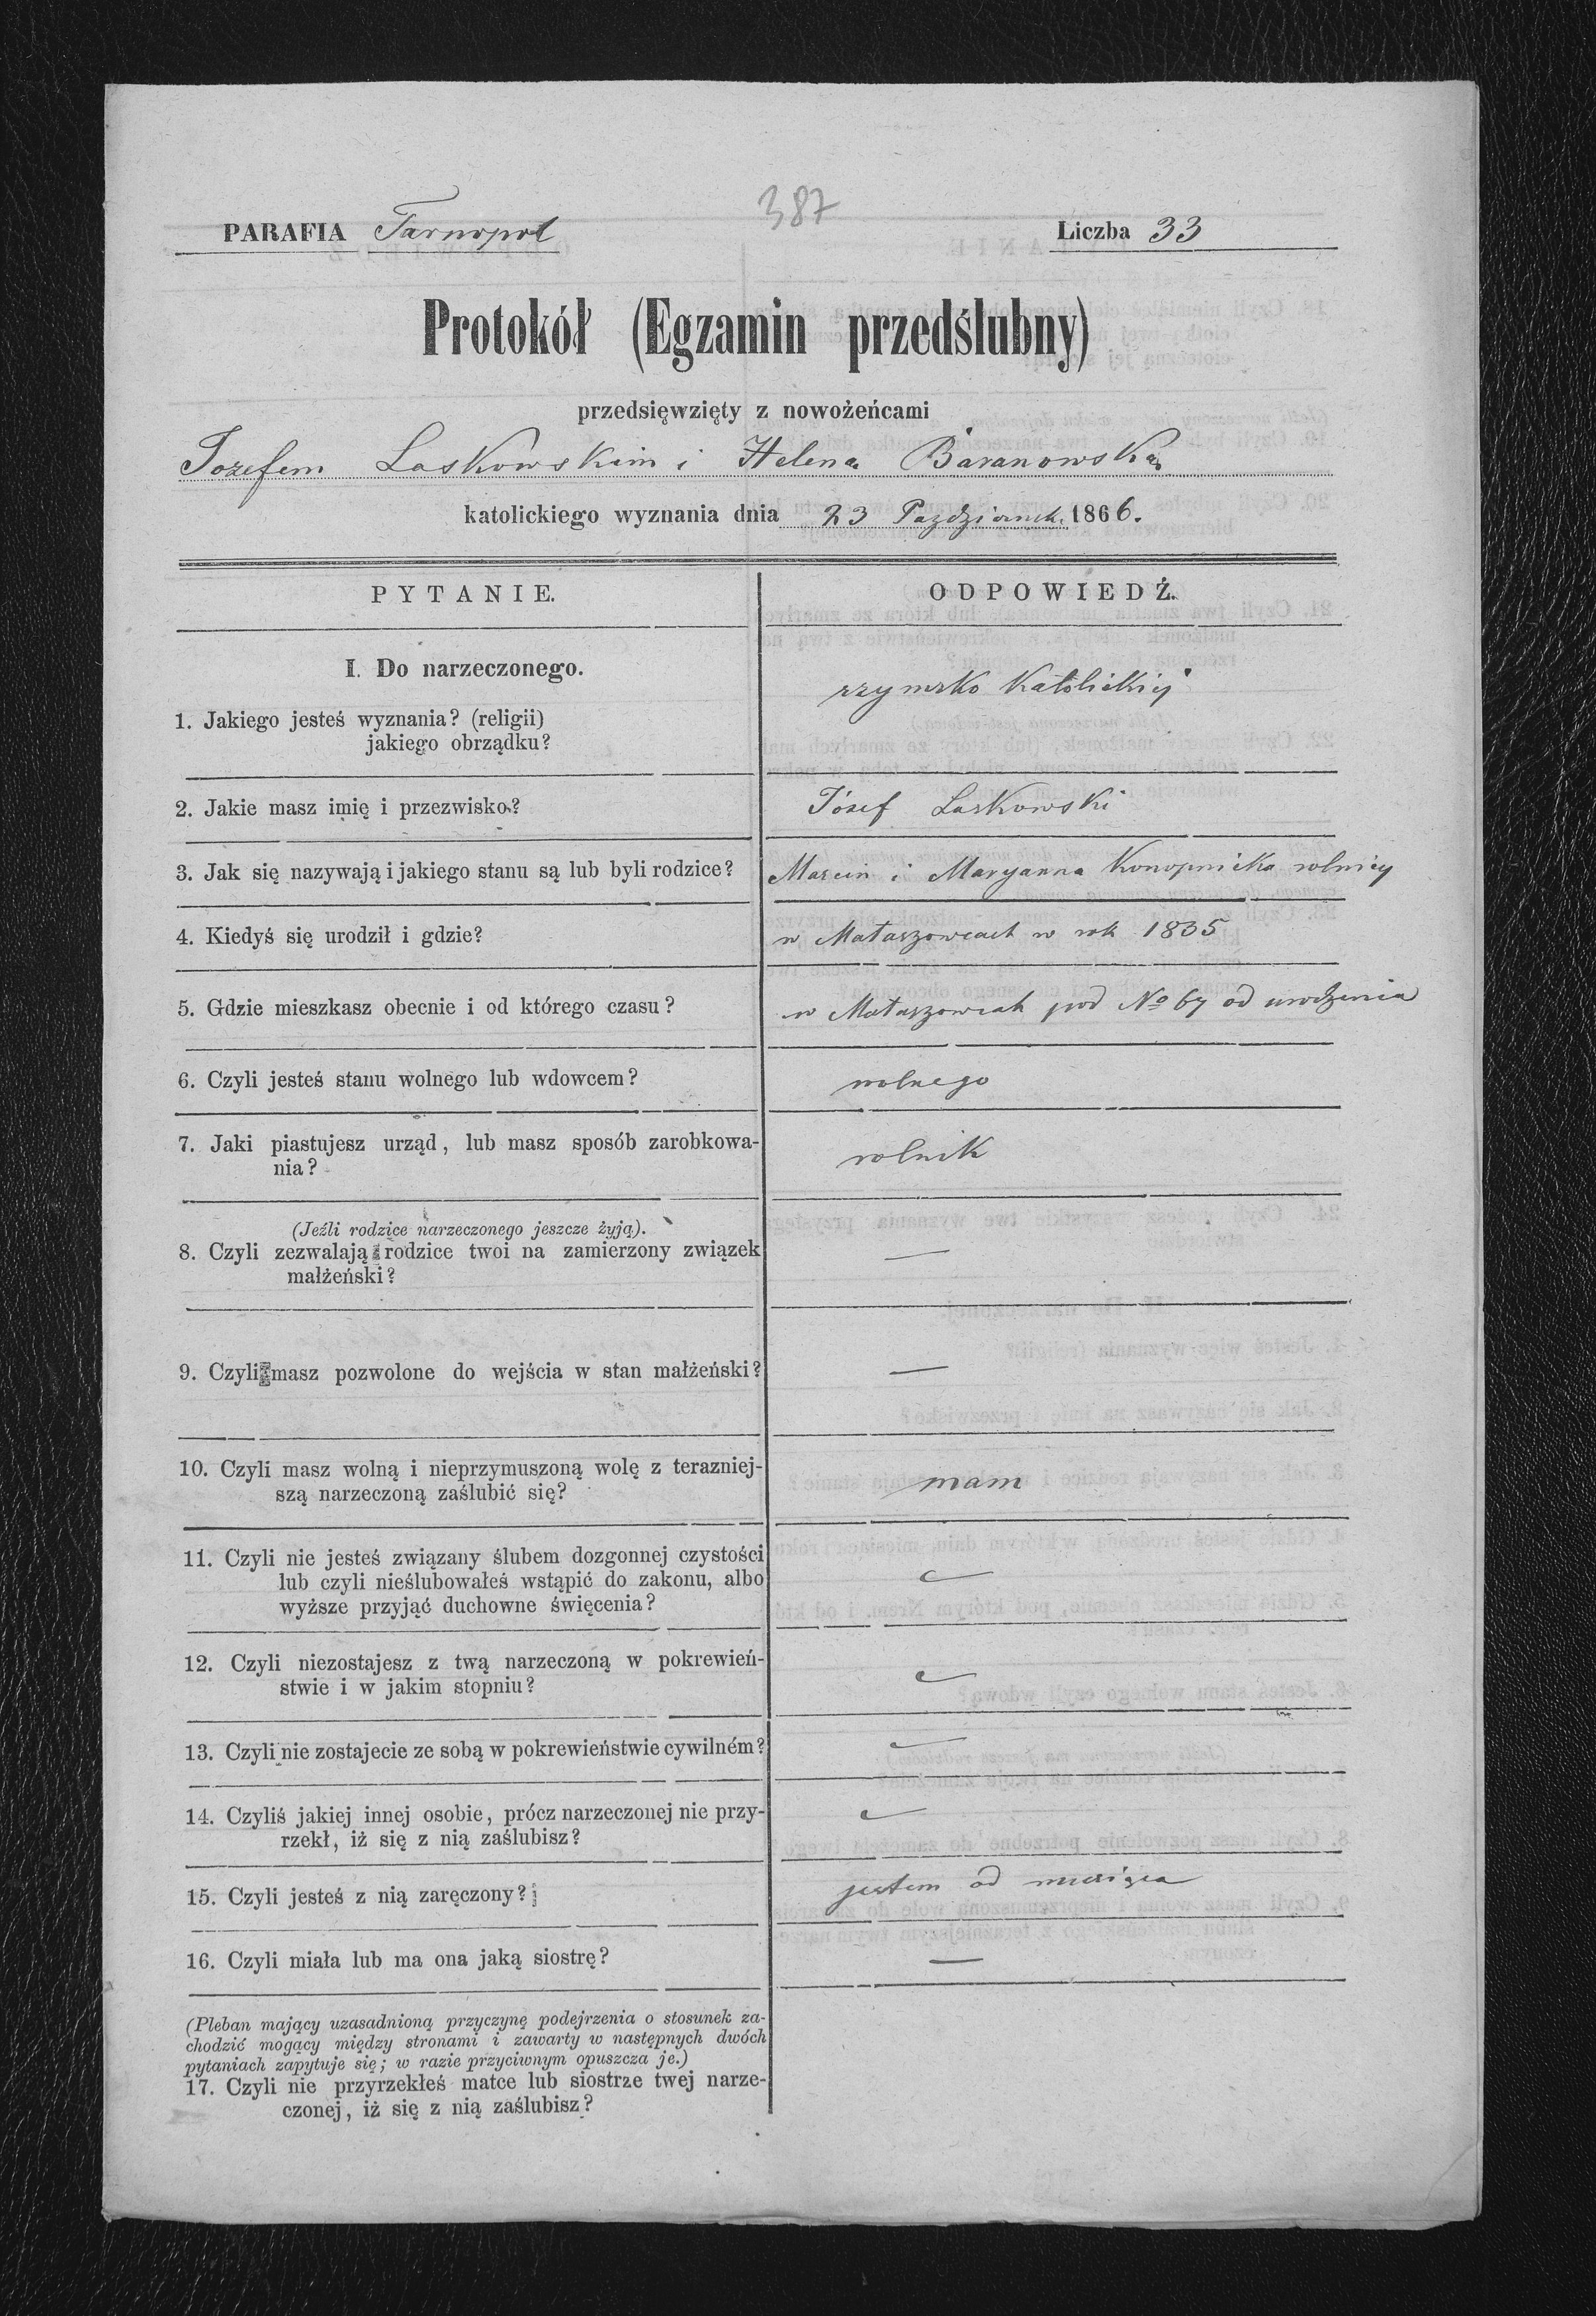 387
PARAFIA Tarnopol Liczba 33
Protokół (Egzamin przedślubny)
przedsięwzięty z nowożeńcami
Jozefem Laskowskim i Helena Baranowską
katolickiego wyznania dnia 23 Pazdziernik 1866.
PYTANIE. ODPOWIEDŹ.
I. Do narzeczonego.
1. Jakiego jesteś wyznania? (religii) rzymsko katolickiej
jakiego obrządku?
2. Jakie masz imię i przezwisko? Józef Laskowski
3. Jak się nazywają i jakiego stanu są lub byli rodzice? Marcin i Maryanna Konopnicka rolnicy
4. Kiedyś się urodził i gdzie? w w rok 1835
5. Gdzie mieszkasz obecnie i od którego czasu? w pod No 67 od urodzenia
6. Czyli jesteś stanu wolnego lub wdowcem? wolnego
7. Jaki piastujesz urząd, lub masz sposób zarobkowa-
nia? rolnik
(Jeźli rodzice narzeczonego jeszcze żyją).
8. Czyli zezwalają rodzice twoi na zamierzony związek —
małżeński?
9. Czyli masz pozwolone do wejścia w stan małżeński? —
10. Czyli masz wolną i nieprzymuszoną wolę z terazniej-
szą narzeczoną zaślubić się? mam
11. Czyli nie jesteś związany ślubem dozgonnej czystości
lub czyli nieślubowałeś wstąpić do zakonu, albo
wyższe przyjąć duchowne święcenia?
12. Czyli niezostajesz z twą narzeczoną w pokrewień-
stwie i w jakim stopniu?
13. Czyli nie zostajecie ze sobą w pokrewieństwie cywilném?
14. Czyliś jakiej innej osobie, prócz narzeczonej nie przy-
rzekł, iż się z nią zaślubisz?
15. Czyli jesteś z nią zaręczony? jestem od miesiąca
16. Czyli miała lub ma ona jaką siostrę? —
(Pleban mający uzasadnioną przyczynę podejrzenia o stosunek za-
chodzić mogący między stronami i zawarty w następnych dwóch
pytaniach zapytuje się; w razie przyciwnym opuszcza je.)
17. Czyli nie przyrzekłeś matce lub siostrze twej narze-
czonej, iż się z nią zaślubisz?